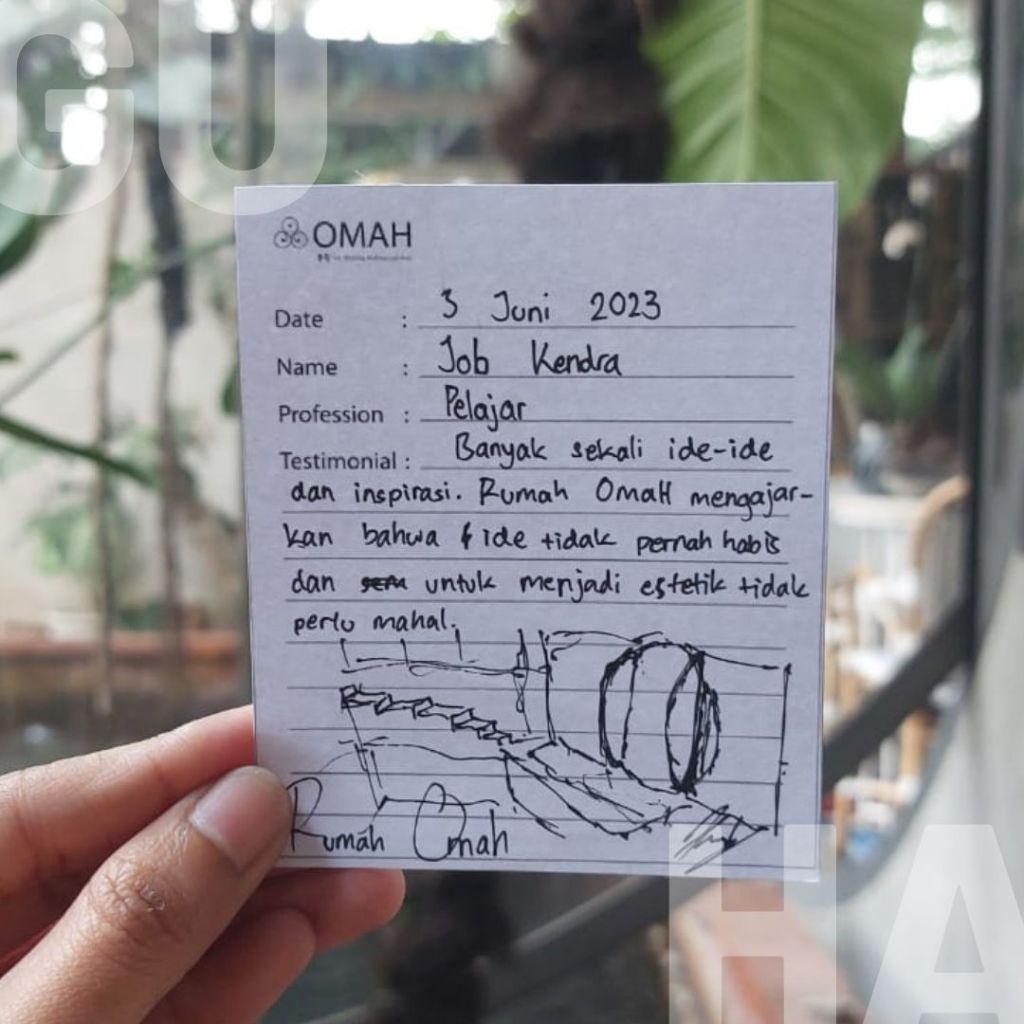 GU
OMAH
Date : 3 Juni 2023
Name : Job Kendra
Profession : Pelajar
Testimonial : Banyak sekali ide-ide
dan inspirasi. Rumah OmaH mengajar-
kan bahwa ide tidak pernah habis
dan untuk menjadi estetik tidak
perlu mahal.
Rumah Omah
HA